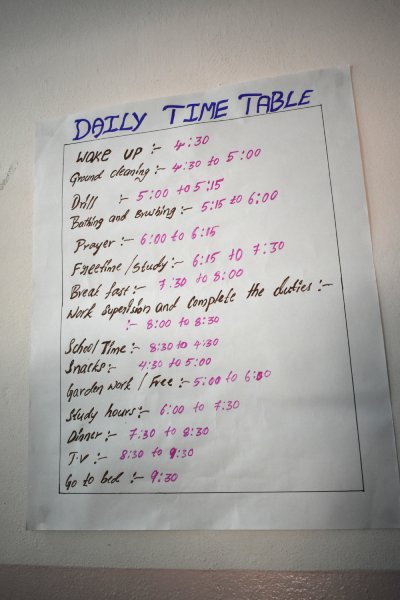 DAILY TIME TABLE
WAKE UP :- 4:30
Ground cleaning :- 4:30 to 5:00
Drill :- 5:00 to 5:15
Bathing and Brushing :- 5:15 to 6:00
Prayer :- 6:00 to 6:15
Freetime / Study :- 6:15 TO 7:30
Break fast :- 7:30 to 8:00
Work Supervision and complete the duties :-
:- 8:00 to 8:30
School Time :- 8:30 to 4:30
Snacks :- 4:30 to 5:00
Garden work / Free :- 5:00 to 6:00
Study hours :- 6:00 to 7:30
Dinner :- 7:30 to 8:30
T.V :- 8:30 to 9:30
Go to bed :- 9:30